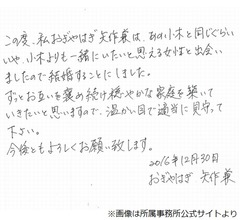 この度、私おぎやはぎ矢作兼は、あの小木と同じぐらい
いや、小木よりも一緒にいたいと思える女性と出会い
ましたので結婚することにしました。
ずっとお互いを褒め続け穏やかな家庭を築いて
いきたいと思いますので、温かい目で適当に見守って
下さい。
今後ともよろしくお願い致します。
2016年12月30日
おぎやはぎ 矢作兼
※画像は所属事務所公式サイトより